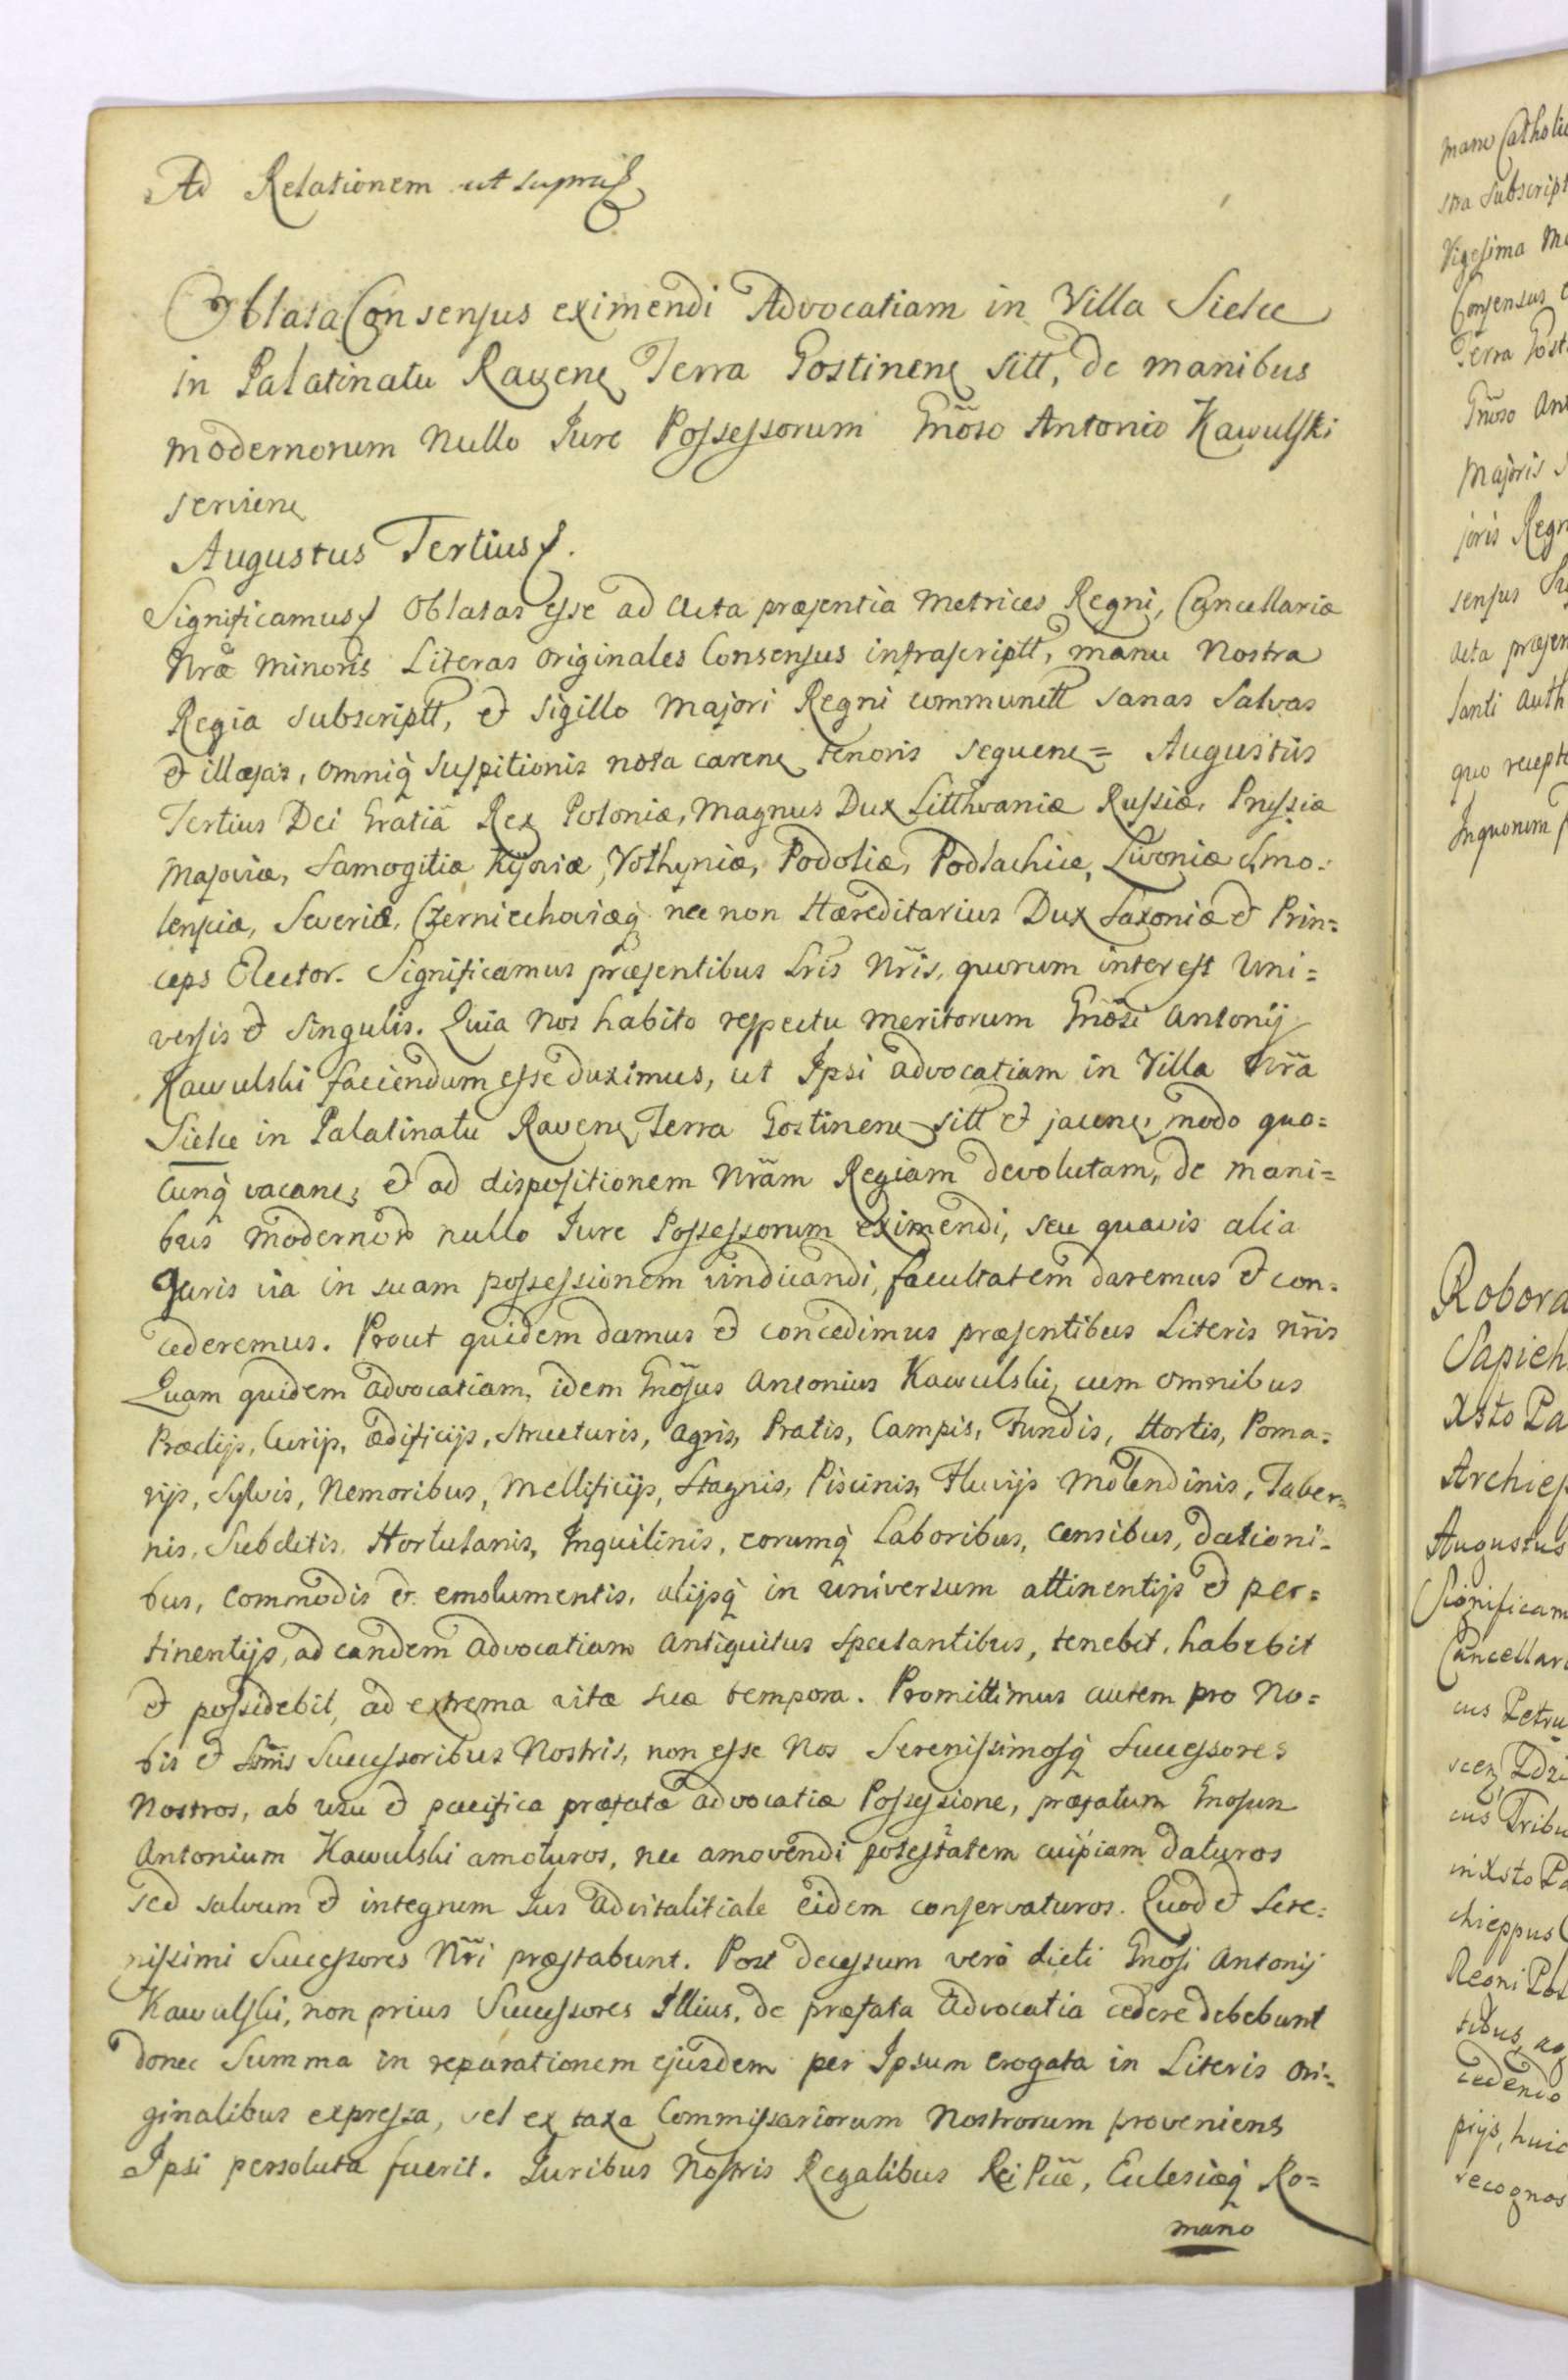 Ad Relationem ut supra
Oblata Consensus eximendi Advocatiam in Villa Sielce
in Palatinatu Raven Terra Gostinen sitt, de manibus
modernorum nullo Jure Possessorum Gnõso Antonio Kawulski
servien
Augustus Tertius
Significamus Oblatas esse ad Acta præsentia Metrices Regni, Cancellariæ
Nræ Minoris Literas originales Consensus infrascriptt, manu Nostra
Regia subscriptt, et sigillo Majori Regni communitt sanas salvas
et illæsas, omniq̀ suspitionis nota caren tenoris sequen = Augustus
Tertius Dei Gratiã Rex Poloniæ, Magnus Dux Litthvaniæ Russiæ, Prussiæ
Masoviæ, Samogitiæ Kijoviæ, Volhyniæ, Podoliæ, Podlachiæ, Livoniæ Smo=
lensciæ, Severiæ, Czerniechoviæq̀ nec non Hæreditarius Dux Saxoniæ et Prin=
ceps Elector. Significamus præsentibus Lris Nris, quorum interest Uni=
versis et singulis. Quia Nos habito respectu meritorum Gnõsi Antonij
Kawulski faciendum esse duximus, ut Ipsi advocatiam in Villa Nrã
Sielce in Palatinatu Raven, Terra Gostinen sitt et jacen, modo quo=
cunq̀ vacan, et ad dispositionem Nrãm Regiam devolutam, de mani=
bus modernor nullo Jure Possessorum eximendi, seu quavis alia
Juris via in suam possessionem vindicandi, facultatem daremus et con=
cederemus. Prout quidem damus et concedimus præsentibus Literis nris
Quam quidem advocatiam, idem Gnõsus Antonius Kawulski, cum omnibus
Prædijs, Curijs, ædificijs, structuris, agris, Pratis, Campis, Fundis, Hortis, Poma=
rijs, Sylvis, Nemoribus, Mellificijs, Stagnis, Piscinis, Fluvijs Molendinis, Taber=
nis, Subditis, Hortulanis, Inquilinis, eorumq̀ Laboribus, censibus, dationi=
bus, commodis et emolumentis, alijsq̀ in universum attinentijs et per=
tinentijs, ad eandem advocatiam antiquitus spectantibus, tenebit, habebit
et possidebit, ad extrema vitæ suæ tempora. Promittimus autem pro No=
bis et Srmis Successoribus Nostris, non esse Nos Serenissimosq̀ Successores
Nostros, ab usu et pacifica præfatæ advocatiæ Possessione, præfatum Gnosum
Antonium Kawulski amoturos, nec amovendi potestatem cuipiam daturos
sed salvum et integrum Jus advitalitiale eidem conservaturos. Quod et Sere=
nissimi Successores Nri præstabunt. Post decessum verò dicti Gnosi Antonij
Kawulski, non prius Successores Illius, de præfata advocatia cedere debebunt
donec Summa in reparationem ejusdem per Ipsum erogata in Literis ori=
ginalibus expressa, vel ex taxa Commissariorum Nostrorum proveniens
Ipsi persoluta fuerit. Juribus Nostris Regalibus Rei Pcæ, Eclesiæq̀ Ro=
mano
mano
stra subscript
Vigesima
Consensus
Terra Gost
Gnoso Ant
Majoris
joris Regn
sensus
acta præsen
quo recept
Inquorum
Robora
Sapieh
Xsto Pa
Archiep
Augustus
Significam
Cancellari
cus Petru
cus Tribu
in Xsto Pa
chieppus
Regni Pol
cedendo
pijs, huic
recognos